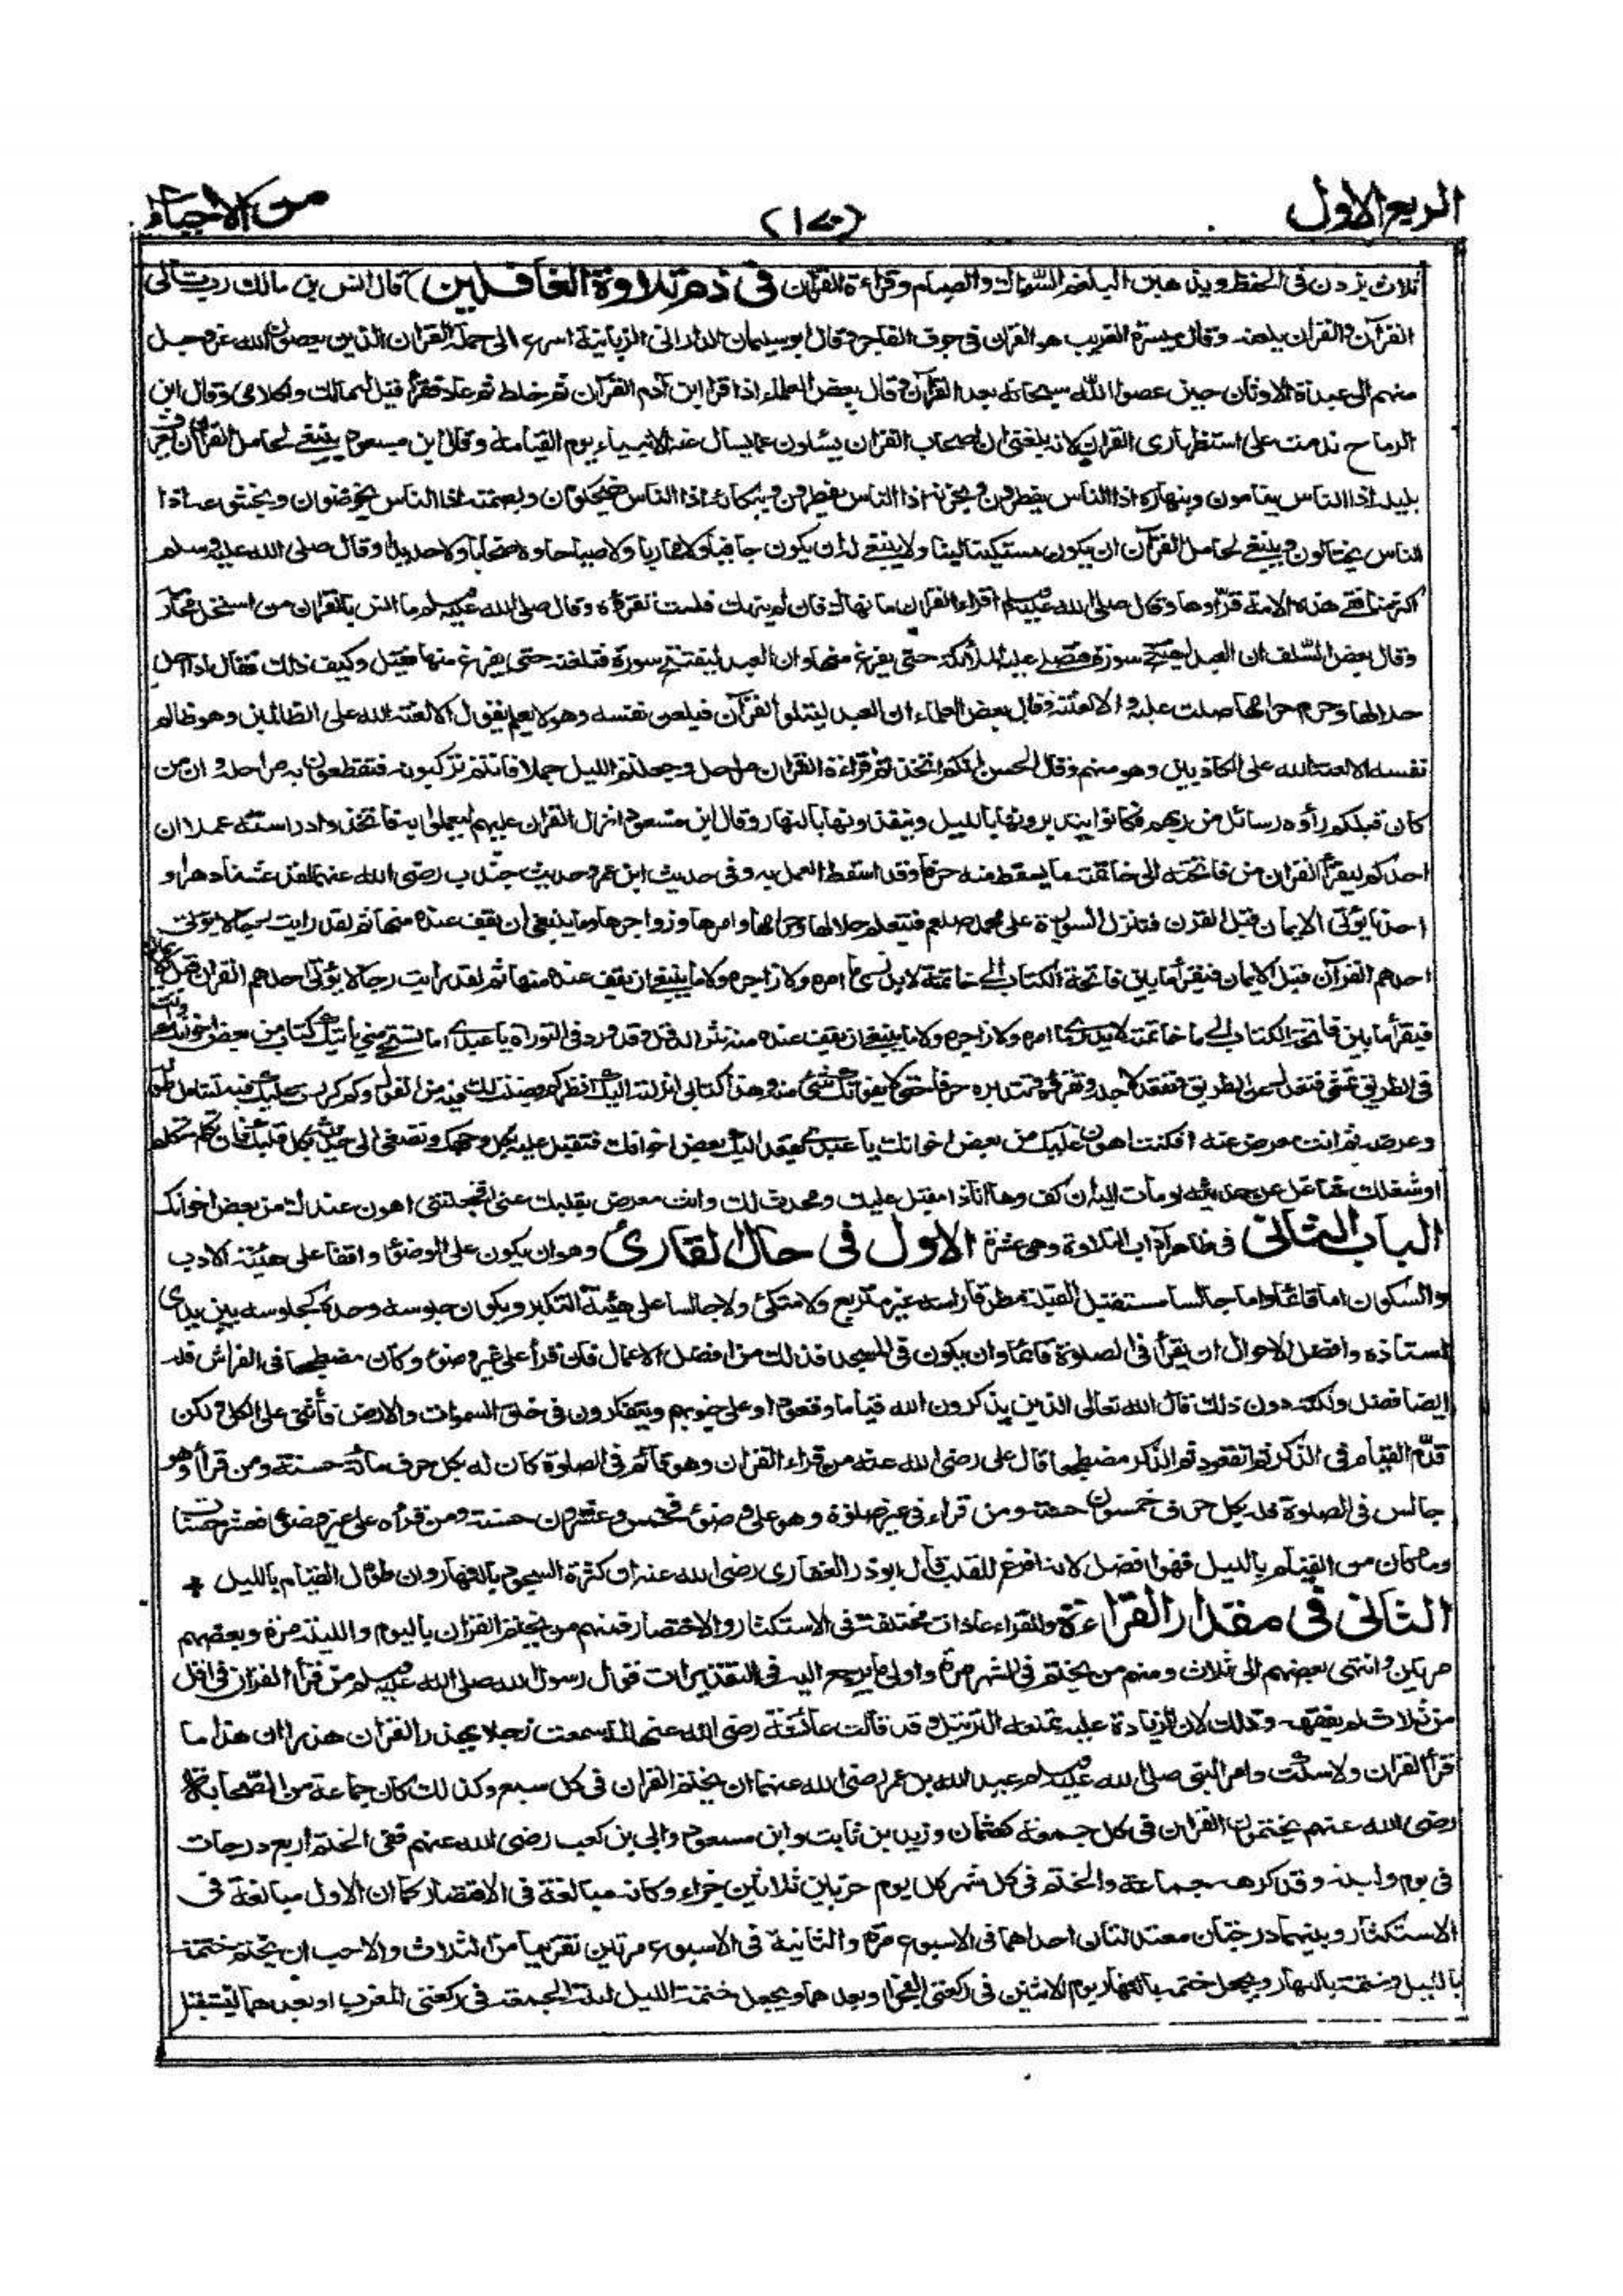 الربع الاول (١٧٠) من الاحياء
ثلاث يزدن فى الحفظ ويذهبن البلغم السواك والصيام وقراءة القرآن فى ذم تلاوة الغافلين) قال انس بن مالك رب تالى
القرآن والقرآن يلعنه وقال ميسرة الغريب هو القران فى جوف الفاجر وقال ابو سليمان الدارانى الزبانية اسرع الى حملة القران الذين يعصون الله عز وجل
منهم الى عبدة الاوثان حين عصوا الله سبحانه بعد القرآن وقال بعض العلماء اذا قرا ابن آدم القرآن ثم خلط ثم عاد فقرأ قيل له مالك ولكلامى وقال ابن
الرماح ندمت على استظهارى القران لانه بلغنى ان اصحاب القران يسئلون عما يسال عنه الانبياء يوم القيامة وقال ابن مسعود ينبغى لحامل القران ان يعرف
بليله اذا الناس ينامون وبنهاره اذا الناس يفطرون وبحزنه اذا الناس يفرحون وببكائه اذا الناس يضحكون وبصمته اذا الناس يخوضون وبخشوعه اذا
الناس يختالون وينبغى لحامل القرآن ان يكون مستكينا لينا ولا ينبغى له ان يكون جافيا ولا مماريا ولا صياحا ولا صخابا ولا حديدا وقال صلى الله عليه وسلم
اكثر منافقى هذه الامة قراؤها وقال صلى الله عليه وسلم اقراء القران ما نهاك فان لم ينهك فلست تقرؤه وقال صلى الله عليه وسلم ما امن بالقران من استحل محارمه
وقال بعض السلف ان العبد ليفتتح سورة فتصلى عليه الملائكة حتى يفرغ منها وان العبد ليفتتح سورة فتلعنه حتى يفرغ منها فقيل وكيف ذلك فقال اذا احل
حلالها وحرم حرامها صلت عليه والا لعنته وقال بعض العلماء ان العبد ليتلو القرآن فيلعن نفسه وهو لا يعلم يقول الا لعنة الله على الظالمين وهو ظالم
نفسه الا لعنة الله على الكاذبين وهو منهم وقال الحسن انكم اتخذتم قراءة القران مراحل وجعلتم الليل جملا فانتم تركبونه فتقطعون به مراحله وان من
كان قبلكم رأوه رسائل من ربهم فكانوا يتدبرونها بالليل وينفذونها بالنهار وقال ابن مسعود انزل القران عليهم ليعملوا به فاتخذوا دراسته عملا ان
احدكم ليقرأ القران من فاتحته الى خاتمته ما يسقط منه حرفا وقد اسقط العمل به وفى حديث ابن عمر وحديث جندب رضى الله عنهما لقد عشنا دهرا و
احدنا يؤتى الايمان قبل القران فتنزل السورة على محمد صلعم فيتعلم حلالها وحرامها وامرها وزواجرها وما ينبغى ان يقف عنده منها ثم لقد رايت رجالا يؤتى
احدهم القرآن قبل الايمان فيقرأ ما بين فاتحة الكتاب الى خاتمته لا يدرى ما امره ولا زاجره ولا ما ينبغى ان يقف عنده منها ثم لقد رايت رجالا يؤتى احدهم القران قبل
فيقرأ ما بين فاتحة الكتاب الى خاتمته لا يدرى ما امره ولا زاجره ولا ما ينبغى ان يقف عنده منه ينثره نثر الدقل وقد ورد فى التوراة يا عبدى اما تستحيى منى ياتيك كتاب من بعض اخوانك وانت
فى الطريق تمشى فتعدل عن الطريق وتقعد لاجله وتقرؤه وتتدبره حرفا حرفا حتى لا يفوتك شئ منه وهذا كتابى انزلته اليك انظر كم فصلت لك فيه من القول وكم كررت عليك فيه لتتامل طوله
وعرضه ثم انت معرض عنه افكنت اهون عليك من بعض اخوانك يا عبدى يقعد اليك بعض اخوانك فتقبل عليه بكل وجهك وتصغى الى حديثه بكل قلبك فان تكلم متكلم
او شغلك شاغل عن حديثه اومات اليه ان كف وها انا ذا مقبل عليك ومحدث لك وانت معرض بقلبك عنى افجعلتنى اهون عندك من بعض اخوانك
الباب الثانى فى ظاهر آداب التلاوة وهى عشرة الاول فى حال القارئ وهو ان يكون على الوضوء واقفا على هيئة الادب
والسكون اما قائما واما جالسا مستقبل القبلة مطرقا راسه غير متربع ولا متكئ ولا جالسا على هيئة التكبر ويكون جلوسه وحده كجلوسه بين يدى
استاذه وافضل الاحوال ان يقرأ فى الصلوة قائما وان يكون فى المسجد فذلك من افضل الاعمال فان قرأ على غير وضوء وكان مضطجعا فى الفراش فله
ايضا فضل ولكنه دون ذلك قال الله تعالى الذين يذكرون الله قياما وقعودا وعلى جنوبهم ويتفكرون فى خلق السموات والارض فأثنى على الكل ولكن
قدم القيام فى الذكر ثم القعود ثم الذكر مضطجعا قال على رضى الله عنه من قراء القران وهو قائم فى الصلوة كان له بكل حرف مائة حسنة ومن قرأ وهو
جالس فى الصلوة فله بكل حرف خمسون حسنة ومن قراء فى غير صلوة وهو على وضوء فخمس وعشرون حسنة ومن قرأه على غير وضوء فعشر حسنات
وما كان من القيام بالليل فهوا افضل لانه افرغ للقلب قال ابو ذر الغفارى رضى الله عنه ان كثرة السجود بالنهار وان طول القيام بالليل +
الثانى فى مقدار القراءة وللقراء عادات مختلفة فى الاستكثار والاختصار فمنهم من يختم القران باليوم والليلة مرة وبعضهم
مرتين وانتهى بعضهم الى ثلاث ومنهم من يختم فى الشهر مرة واولى ما يرجع اليه فى التقديرات قول رسول الله صلى الله عليه وسلم من قرأ القران فى اقل
من ثلاث لم يفقهه وذلك لان الزيادة عليه تمنعه الترتيل وقد قالت عائشة رضى الله عنها لما سمعت رجلا يهذر القران هذرا ان هذا ما
قرأ القران ولا سكت وامر النبى صلى الله عليه وسلم عبد الله بن عمر رضى الله عنهما ان يختم القران فى كل سبع وكذلك كان جماعة من الصحابة
رضى الله عنهم يختمون القران فى كل جمعة كعثمان وزيد بن ثابت وابن مسعود وابى بن كعب رضى الله عنهم ففى الختم اربع درجات
فى يوم وليلة وقد كرهه جماعة والختم فى كل شهر كل يوم جزء من ثلاثين جزاء وكانه مبالغة فى الاقتصار كما ان الاول مبالغة فى
الاستكثار وبينهما درجتان معتدلتان احداهما فى الاسبوع مرة والثانية فى الاسبوع مرتين تقريبا من الثلاث والاحب ان يختم ختمة
بالليل وختمة بالنهار ويجعل ختمه بالنهار يوم الاثنين فى ركعتى الفجر او بعدهما ويجعل ختمة الليل ليلة الجمعة فى ركعتى المغرب او بعدهما ليستقبل